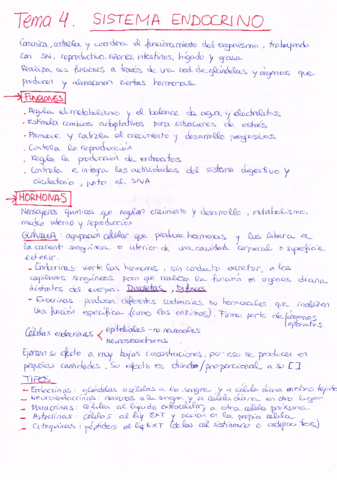 Tema 4. SISTEMA ENDOCRINO
Comunica, controla y coordina el funcionamiento del organismo, trabajando
con SN, reproductivo, riñones, intestinos, hígado y grasa
Realiza sus funciones a través de una red de glándulas y órganos que
producen y almacenan ciertas hormonas.
FUNCIONES
- Regula el metabolismo y el balance de agua y electrolitos
- Estimula cambios adaptativos para situaciones de estrés
- Promueve y controla el crecimiento y desarrollo progresivos
- Controla la reproducción
- Regla la producción de eritrocitos
- Controla e integra las actividades del sistema digestivo y
circulatorio, junto al SNA
HORMONAS
Mensajeros químicos que regulan crecimiento y desarrollo, metabolismo,
medio interno y reproducción
GLÁNDULA: agrupación celular que produce hormonas y las libera a
la corriente sanguínea o interior de una cavidad corporal o superficie
exterior.
- Endocrinas: vierte las hormonas, sin conducto excretor, a los
capilares sanguíneos para que realicen la función en órganos diana
distantes del cuerpo. Discretas, Difusas
- Exocrinas: producen diferentes sustancias no hormonales que realizan
una función específica (como las enzimas). Forma parte de órganos
Células endocrinas < epiteliales - no neuronales
neurosecretoras
Ejercen su efecto a muy bajas concentraciones, por eso se producen en
pequeñas cantidades. Su efecto es directo/proporcional a su [ ]
TIPOS
- Endocrinas: glándulas o células a la sangre y a célula diana en otro tejido
- Neuroendocrinas: neuronas a la sangre y a célula diana en otro lugar
- Paracrinas: células al líquido extracelular, a otra célula próxima
- Autocrinas: células al líq EXT y acción en la propia célula
- Citoquinas: péptidos al líq EXT (de las cel sist inmune o adipocitos)